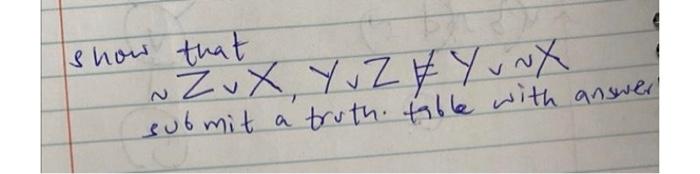 show that
~Z∨X, Y∨Z ⊭ Y∨~X
submit a truth. table with answer